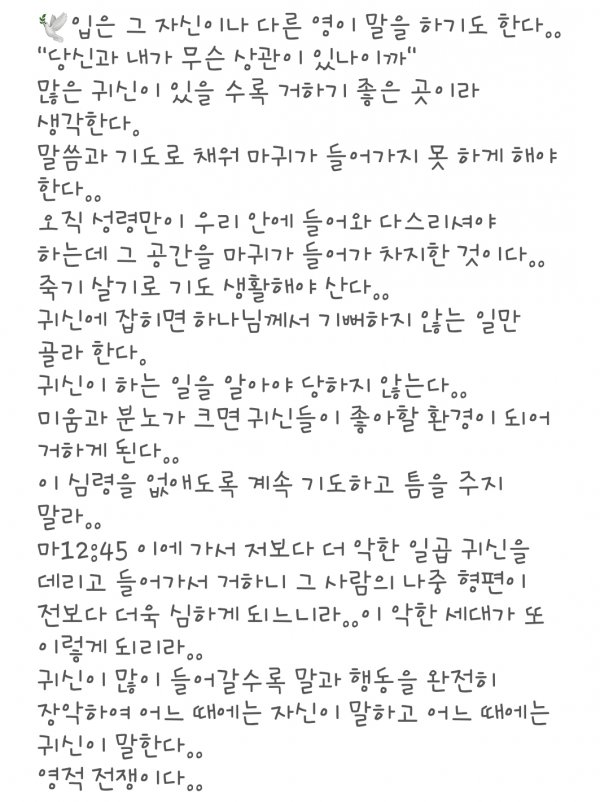 🕊입은 그 자신이나 다른 영이 말을 하기도 한다。。
"당신과 내가 무슨 상관이 있나이까"
많은 귀신이 있을 수록 거하기 좋은 곳이라
생각한다。
말씀과 기도로 채워 마귀가 들어가지 못 하게 해야
한다。。
오직 성령만이 우리 안에 들어와 다스리셔야
하는데 그 공간을 마귀가 들어가 차지한 것이다。。
죽기 살기로 기도 생활해야 산다。。
귀신에 잡히면 하나님께서 기뻐하지 않는 일만
골라 한다。
귀신이 하는 일을 알아야 당하지 않는다。。
미움과 분노가 크면 귀신들이 좋아할 환경이 되어
거하게 된다。。
이 심령을 없애도록 계속 기도하고 틈을 주지
말라。。
마12:45 이에 가서 저보다 더 악한 일곱 귀신을
데리고 들어가서 거하니 그 사람의 나중 형편이
전보다 더욱 심하게 되느니라。。이 악한 세대가 또
이렇게 되리라。。
귀신이 많이 들어갈수록 말과 행동을 완전히
장악하여 어느 때에는 자신이 말하고 어느 때에는
귀신이 말한다。。
영적 전쟁이다。。